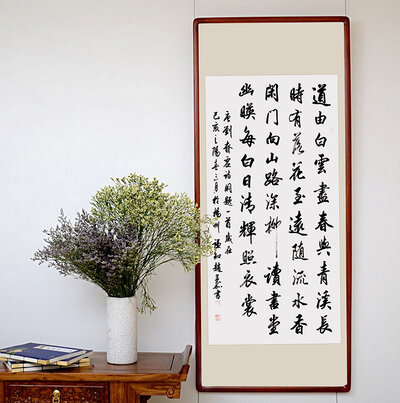 道由白雲盡春與青溪長
時有落花至遠隨流水香
閑门向山路深柳讀書堂
幽暎每白日清輝照衣裳
唐劉眘虛詩闕題一首歲在
己亥之陽春三月於揚州趙書